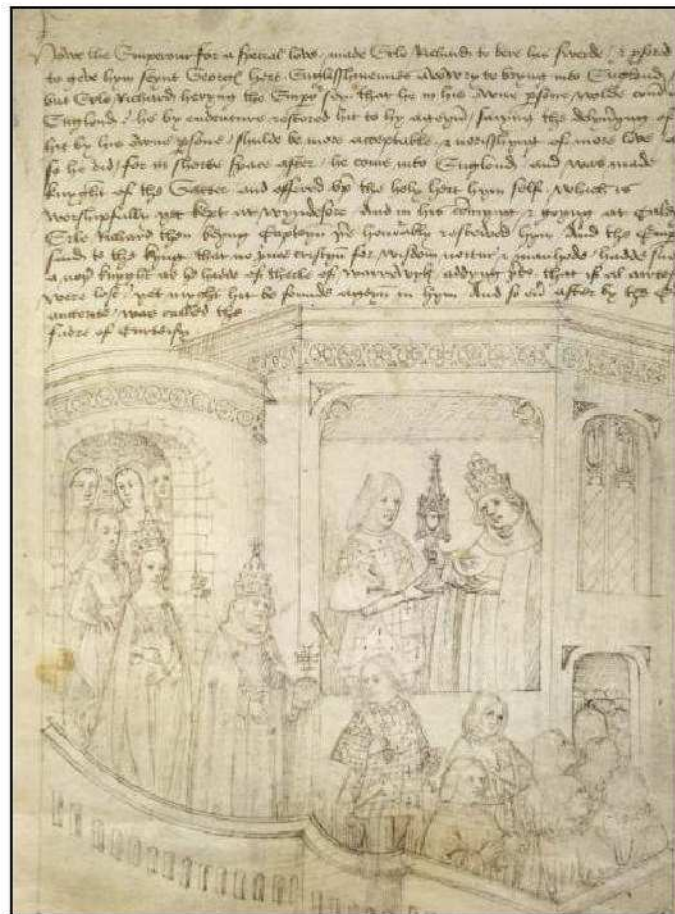 Howe the Emperour for a special love made Erle Richard to bere his swerde & pferid
to geve hym seynt Georges hert Englisshemennes Avowry to bryng into Englond
but Erle Richard heryng the Empo sey that he in his owne psone wolde com
Englond he by endenture restored hit to hy ageyn saiyng the delyvyng of
hit by his owne psone shulde be more acceptable & norisshyng of more love
so he did for in shorte space after he come into Englond and was made
knyght of the Garter and offered vp the holy hert hym self which is
worshipfully yet kept at Wyndesore And in his comyng & goyng at Cales
Erle Richard then beyng Capteyn þe honurably resceived hym And the Emp
said to the kyng that no pnce cristyn for wisdom nortur & manhode hadde suc
a noþ knyght as he hadde of therle of Warrewyk addyng þto that if al curtes
were lost yet myght hit be founde ageyn in hym And so eu after by the
auctorite was called the
fadre of Curteisy